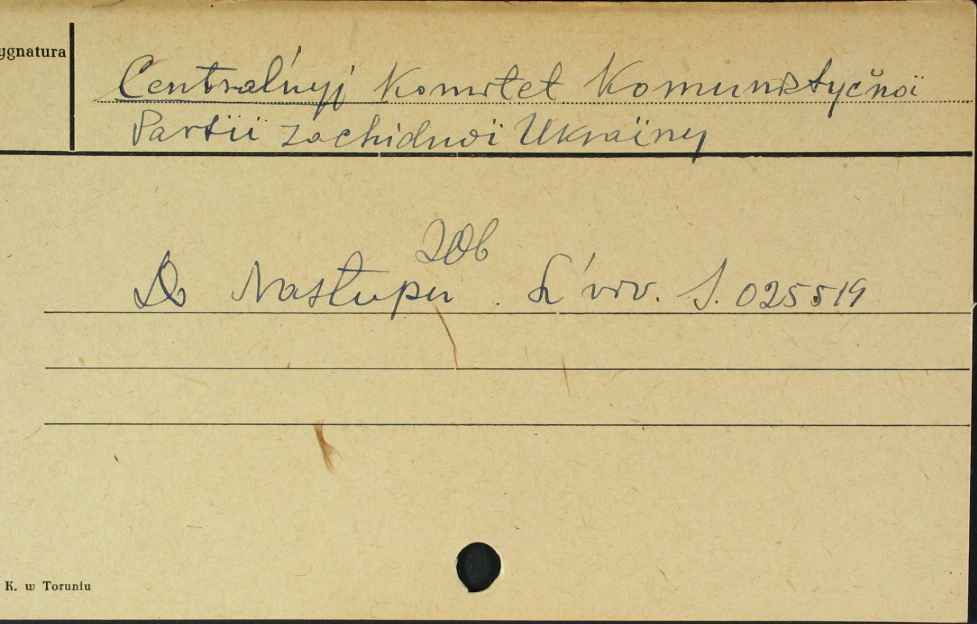 ygnatura
Central'nyj Komitet Komunistyčnoï
Partiï zachidnoï Ukraïny
Zob
Do Nastupu. L'viv. S. 025519
K. w Toruniu